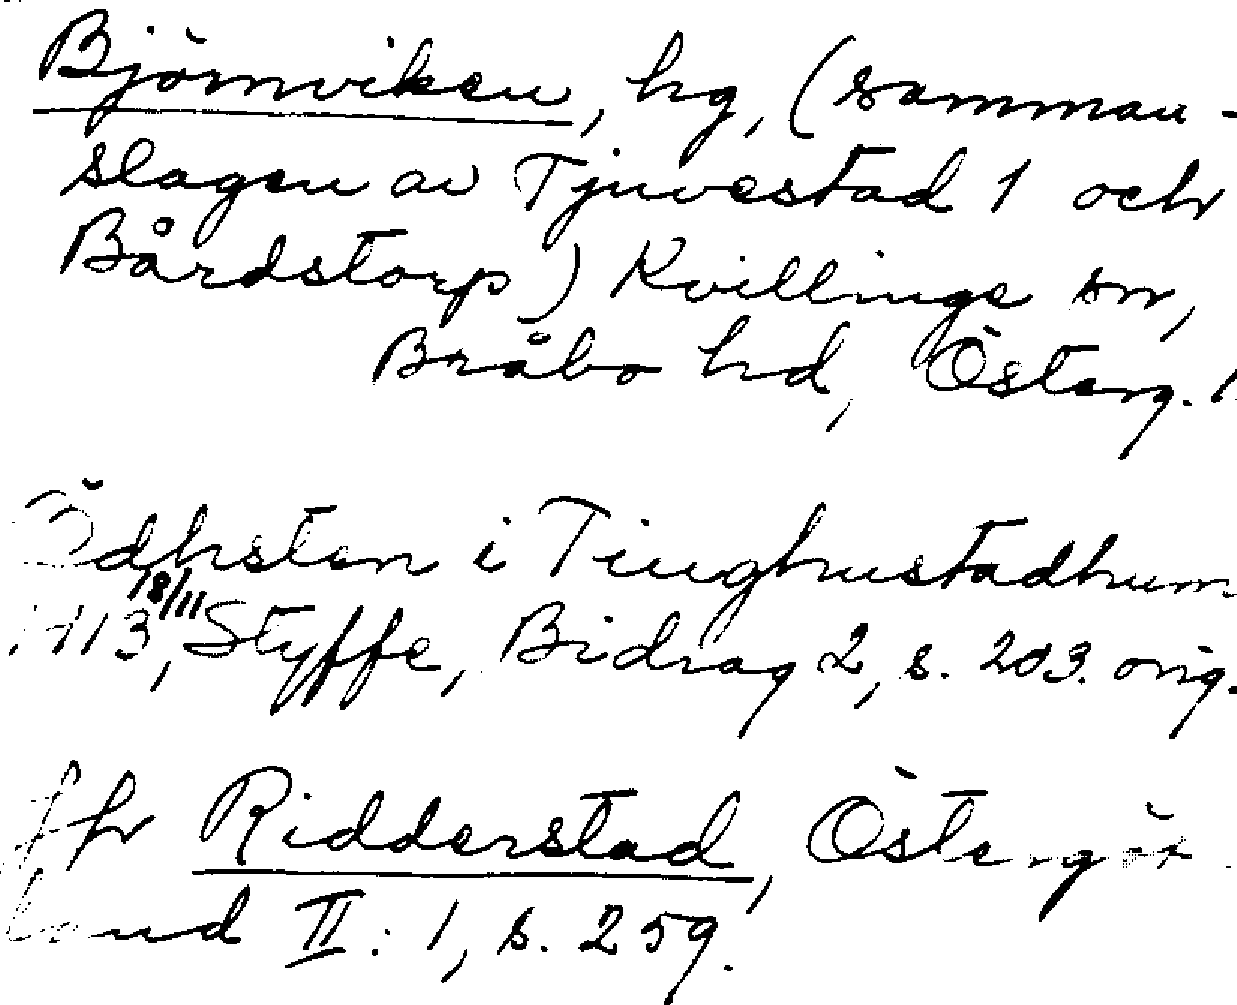 Björnviken, hg, (samman-
slagen av Tjuvestad 1 och
Bårdstorp) Kvillinge sn,
Bråbo hd, Österg. l.
Ödhsten i Tinghustadhum
1413 18/11, Styffe, Bidrag 2, s. 203. orig.
Jfr Ridderstad, Östergöt-
land II: 1, s. 259.